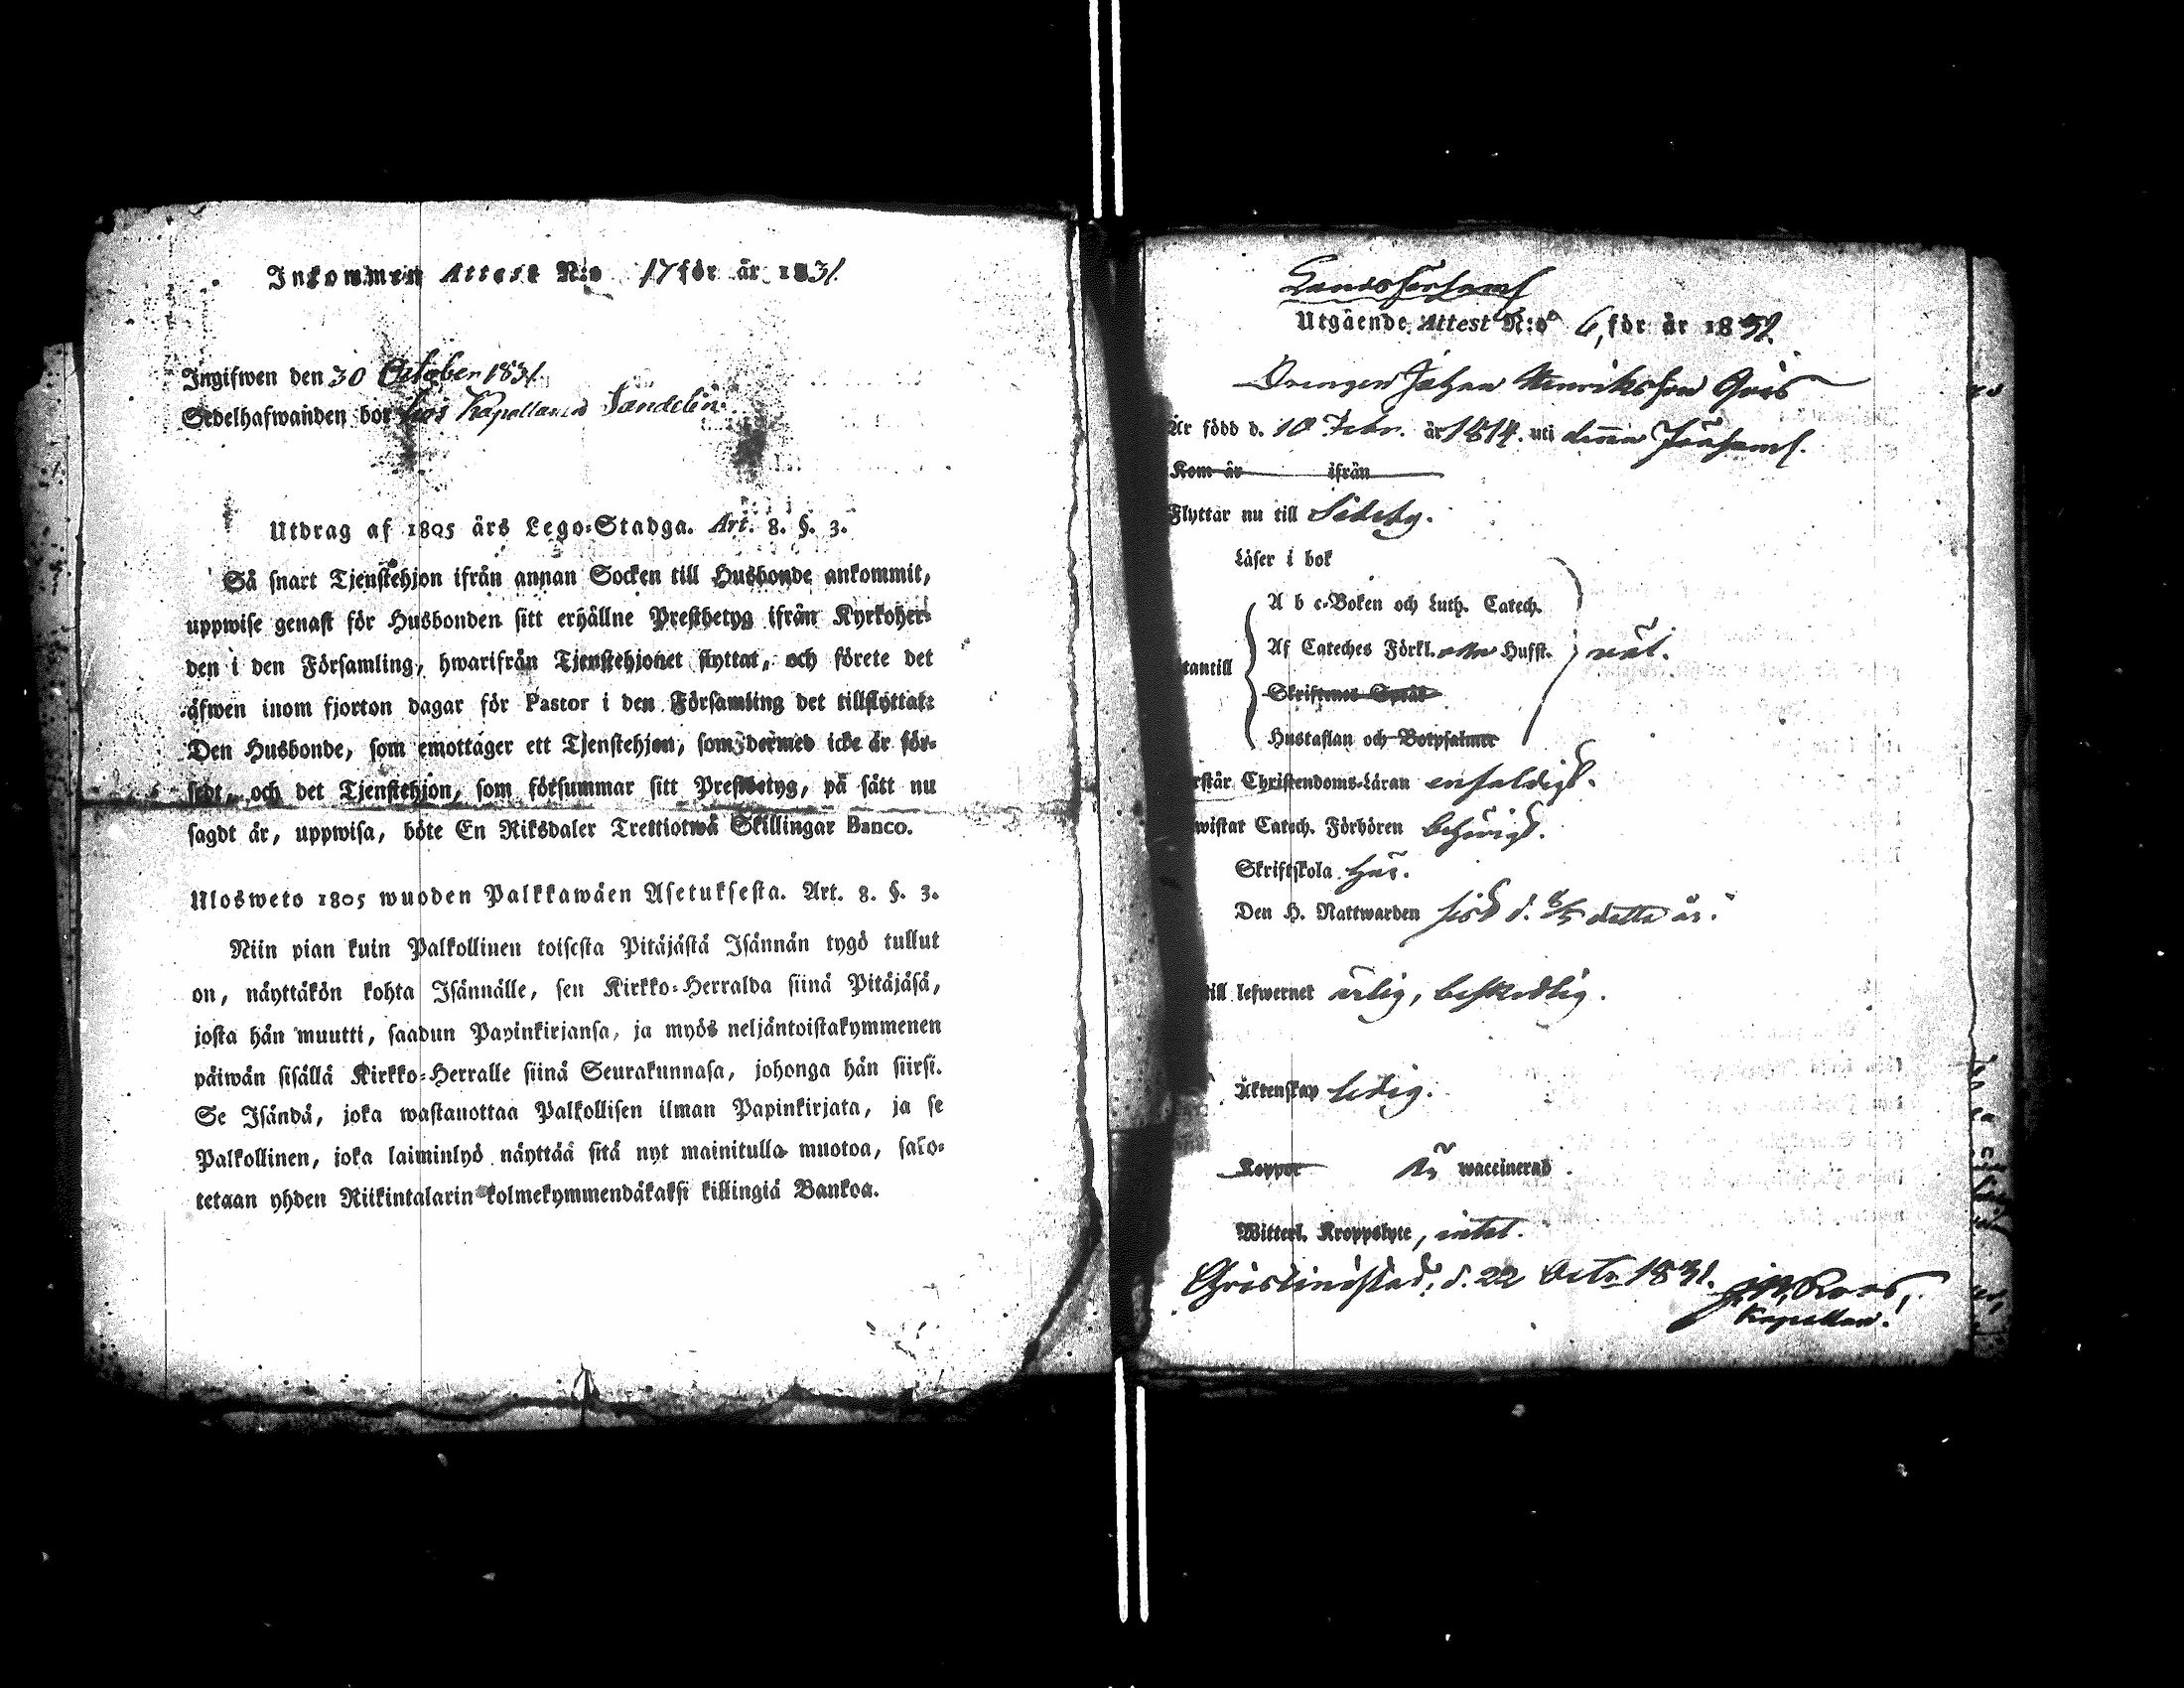 Inkommen Attest N:o 17 för år 1831.
Ingifwen den 30 October 1831.
Sedelhafwanden bor hos Kapellanen Sandelin.
Utdrag af 1805 års Lego-Stadga. Art. 8. §. 3.
Så snart Tjenstehjon ifrån annan Socken till Husbonde ankommit,
uppwise genast för Husbonden sitt erhållne Prestbetyg ifrån Kyrkoher-
den i den Församling, hwarifrån Tjenstehjonet flyttat, och förete det
äfwen inom fjorton dagar för Pastor i den Församling det tillflyttat:
Den Husbonde, som emottager ett Tjenstehjon, som dermed icke är för-
sedt, och det Tjenstehjon, som försummar sitt Prestbetyg, på sätt nu
sagdt är, uppwisa, böte En Riksdaler Trettiotwå Skillingar Banco.
Ulosweto 1805 wuoden Palkkawäen Asetuksesta. Art. 8. §. 3.
Niin pian kuin Palkollinen toisesta Pitäjästä Isännän tygö tullut
on, näyttäkön kohta Isännälle, sen Kirkko-Herralda siinä Pitäjäsä,
josta hän muutti, saadun Papinkirjansa, ja myös neljäntoistakymmenen
päiwän sisällä Kirkko-Herralle siinä Seurakunnasa, johonga hän siirsi.
Se Isändä, joka wastanottaa Palkollisen ilman Papinkirjata, ja se
Palkollinen, joka laiminlyö näyttää sitä nyt mainitulla muotoa, sako-
tetaan yhden Riikintalarin kolmekymmendäkaksi killingiä Bankoa.
Landsförsaml
Utgående Attest N:o 6, för år 1831.
Drengen Johan Henriksson
Är född d. 10 Febr. år 1814. uti denna Församl.
Kom år ifrån
Flyttar nu till Sideby.
Läser i bok
A b c-Boken och Luth. Catech.
Af Cateches Förkl. Husst.
tantill
Skriftenes Språk
Hustaflan och Botpsalmer
rstår Christendoms-Läran enfaldigt.
wistat Catech. Förhören behörigt.
Skriftskola här.
Den H. Nattwarden sist d. 8/5 detta år.
till lefwernet ärlig, beskedlig.
Äktenskap ledig.
Koppor waccinerad.
Witterl. Kroppslyte, intet.
Christinestad, d. 22 Octr 1831.
Roos,
Kapellan.